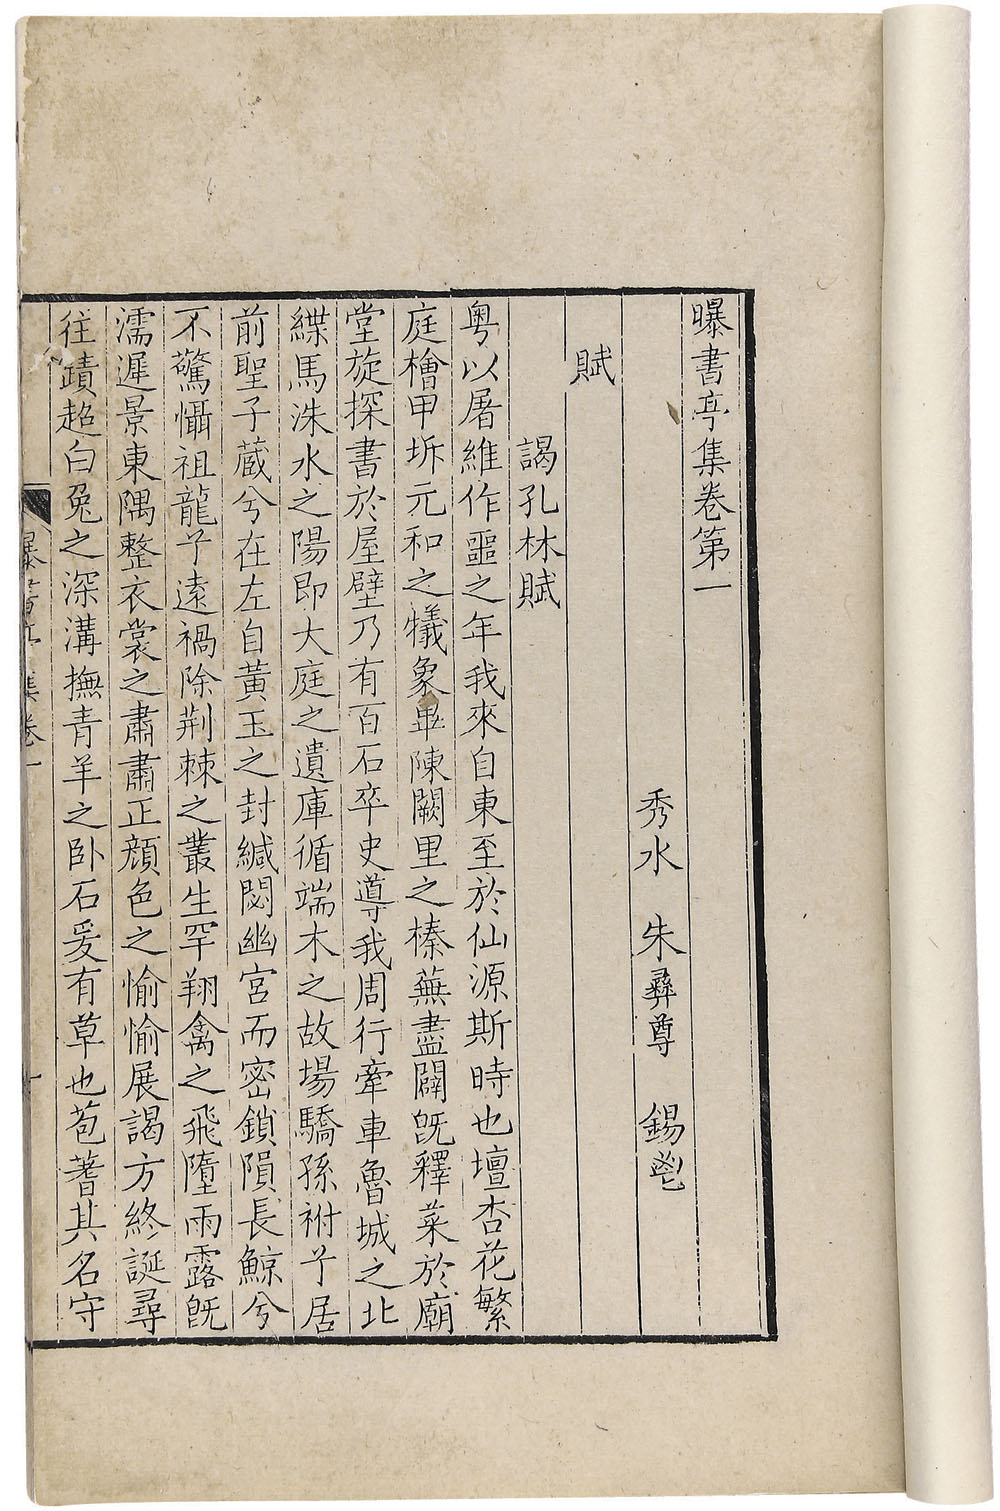 曝書亭集卷第一
秀水 朱彝尊 錫鬯
賦
謁孔林賦
粤以屠維作噩之年我來自東至於仙源斯時也壇杏花繁
庭檜甲坼元和之犧象畢陳闕里之榛蕪盡闢旣釋菜於廟
堂旋探書於屋壁乃有百石卒史導我周行牽車魯城之北
緤馬洙水之陽即大庭之遺庫循端木之故場驕孫祔兮居
前聖子蔵兮在左自黃玉之封緘閟幽宮而密鎖隕長鯨兮
不驚懾祖龍兮遠禍除荆棘之叢生罕翔禽之飛墮雨露旣
濡遲景東隅整衣裳之肅肅正顔色之愉愉展謁方終誕尋
往蹟超白兔之深溝撫青羊之卧石爰有草也苞蓍其名守
曝書亭集卷一
一